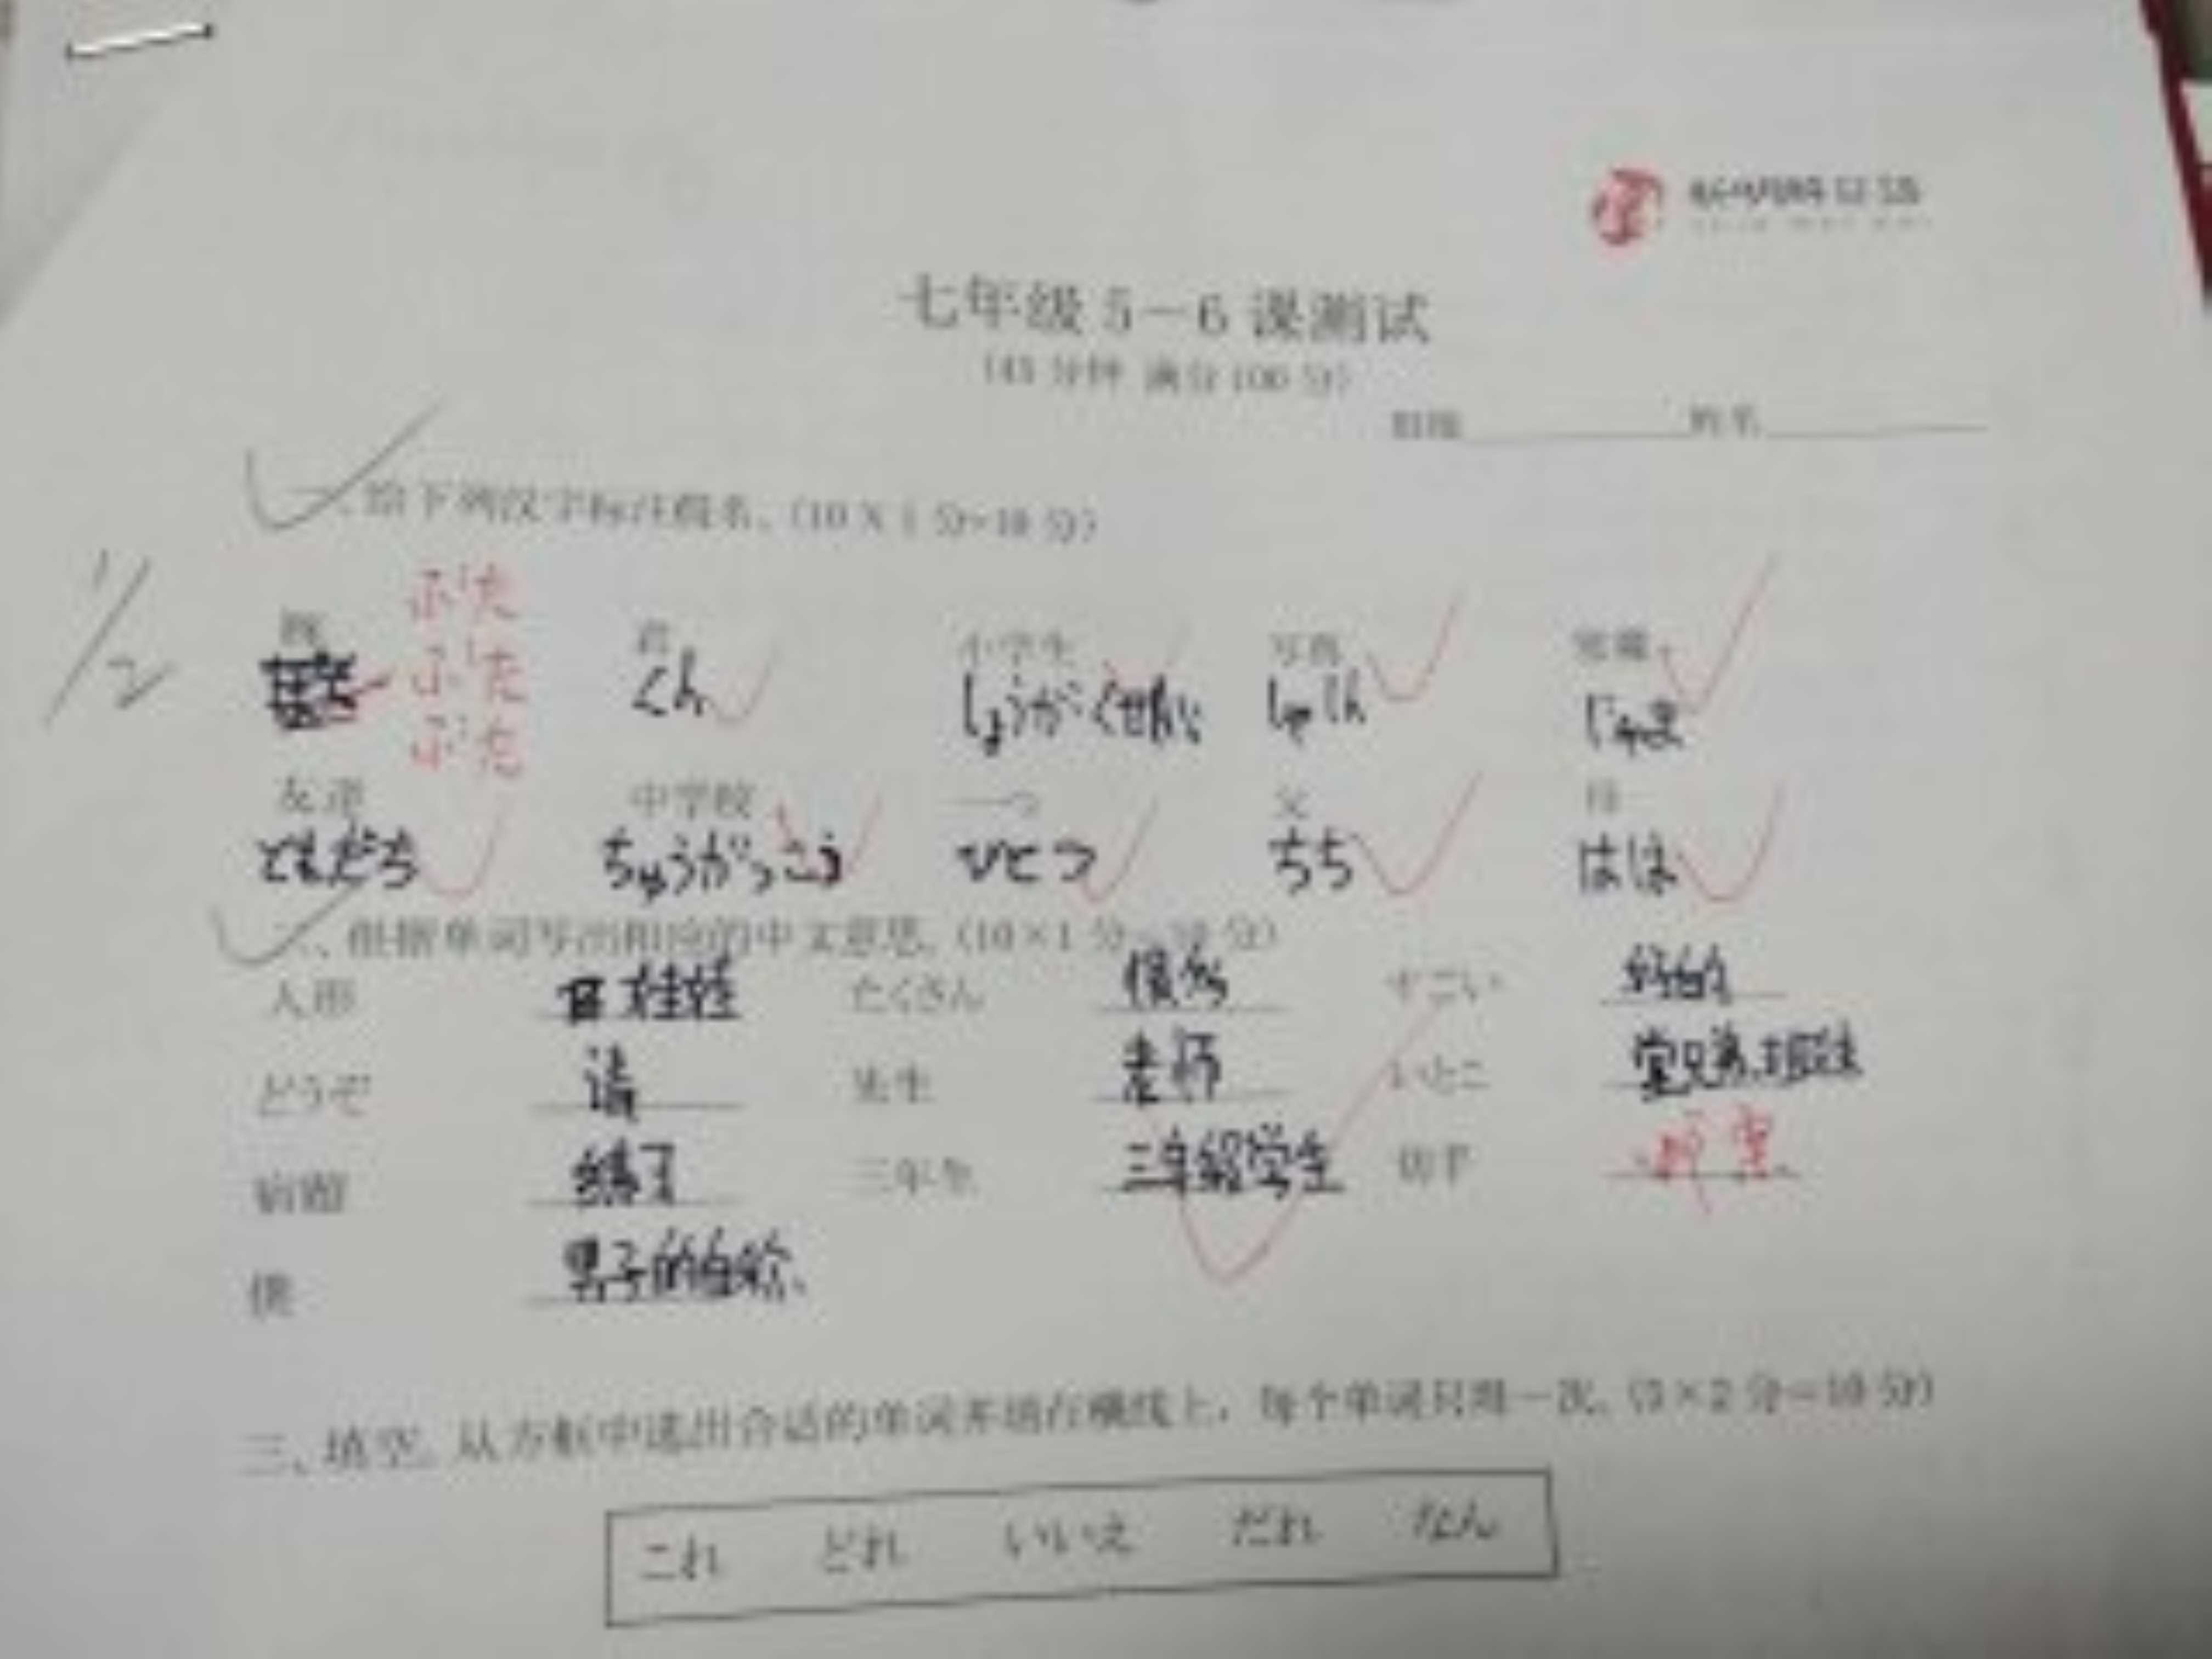 七年级 5-6 课测试
(45 分钟 满分 100 分)
班级 姓名
一、给下列汉字标注假名。(10×1 分=10 分)
1/2
豚 君 小学生 写真 邪魔
ぶた
ぶた
ぶた
くん しょうがくせい しゃしん じゃま
友達 中学校 一つ 父 母
ともだち ちゅうがっこう ひとつ ちち はは
二、根据单词写出相应的中文意思。(10×1 分=10 分)
人形 娃娃 たくさん 很多 すごい 好的
どうぞ 请 先生 老师 いとこ 堂兄弟
宿題 练习 三年生 三年级学生 切手
僕 男子的自称
三、填空。从方框中选出合适的单词并填在横线上，每个单词只用一次。(5×2 分=10 分)
これ どれ いいえ だれ なん